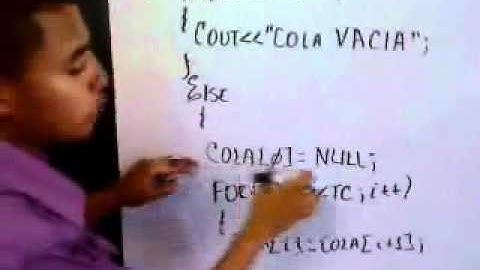 {
COUT<<"COLA VACIA";
}
Else
{
COLA[0]=NULL;
FOR TC; i++)
{
[i]=COLA[i+1];